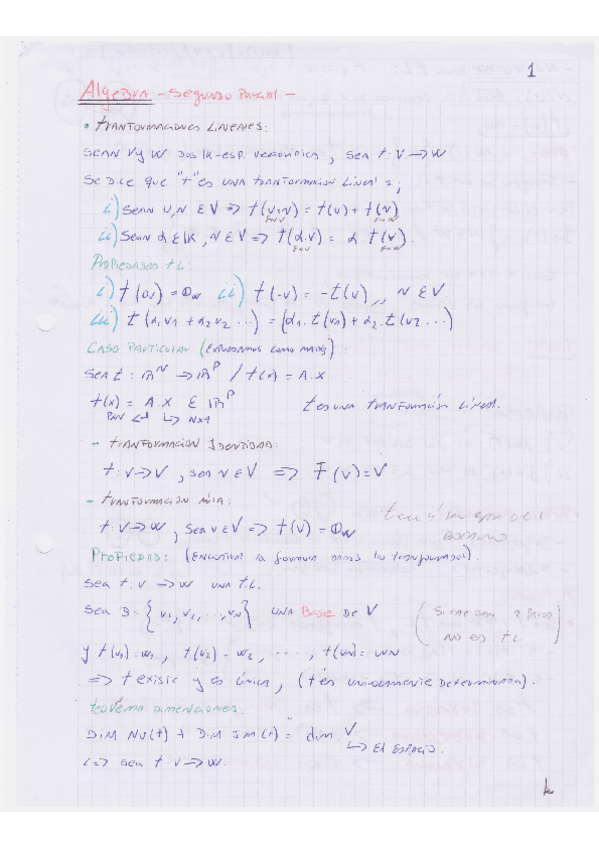 1
Algebra - Segundo Parcial -
• Tranformaciones Lineales:
Sean V y W dos K-esp. vectoriales, sea t: V → W
Se dice que "t" es una tranformacion lineal si
i) Sean v, N ∈ V => t(v+N) = t(v) + t(N)
ii) Sean α ∈ K, N ∈ V => t(α.v) = α t(v).
Propiedades TL:
i) t(0v) = 0w ii) t(-v) = -t(v),, N ∈ V.
iii) t(α1v1 + α2v2 ...) = (α1.t(v1) + α2.t(v2 ...)
Caso Particular (Expresamos como matriz).
Sea t: ℝ^N → ℝ^P / t(x) = A.X
t(x) = A.X ∈ ℝ^P t es una tranformación lineal.
PxN ↲ ↳ Nx1
- Tranformacion Identidad:
t: V → V, sea N ∈ V => F(v) = V
- Tranformacion nula:
t: V → W, sea v ∈ V => t(v) = 0w
Propiedad: (Encontrar la formula dados los transformados).
Sea t: v → W una t.L.
Sea B = {v1, v2, ..., vN} una Base de V
y t(v1) = w1, t(v2) = w2, ..., t(vN) = wN
=> t existe y es única, (t es unicamente determinada).
Teorema dimensiones:
Dim Nu(t) + Dim Im(t) = dim V
↳ El Espacio.
Sea t: v → W.